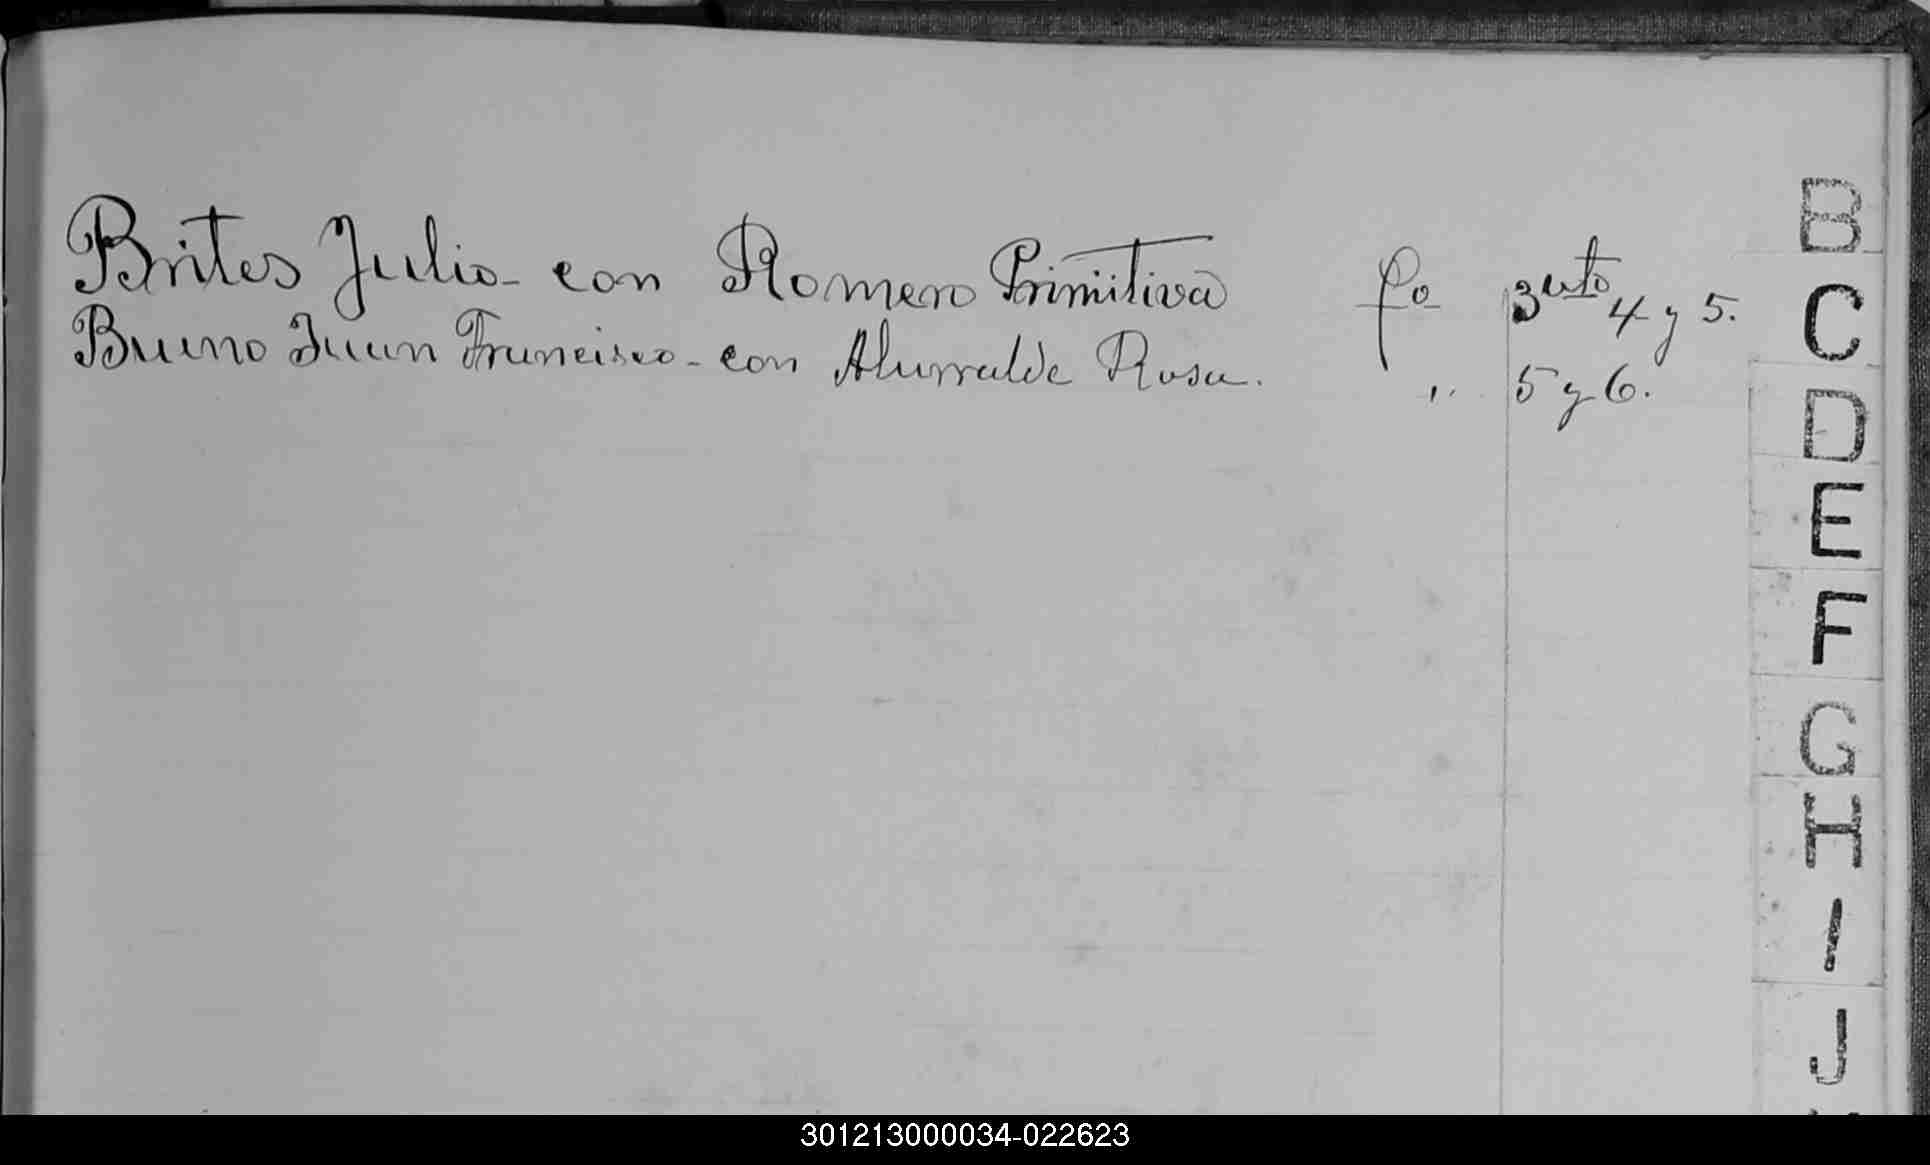 Brites Julio - con Romero Primitiva fo 3 vto 4 y 5.
Bruno Juan Francisco - con Alurralde Rosa. " 5 y 6.
B
C
D
E
F
G
H
I
J
301213000034-022623